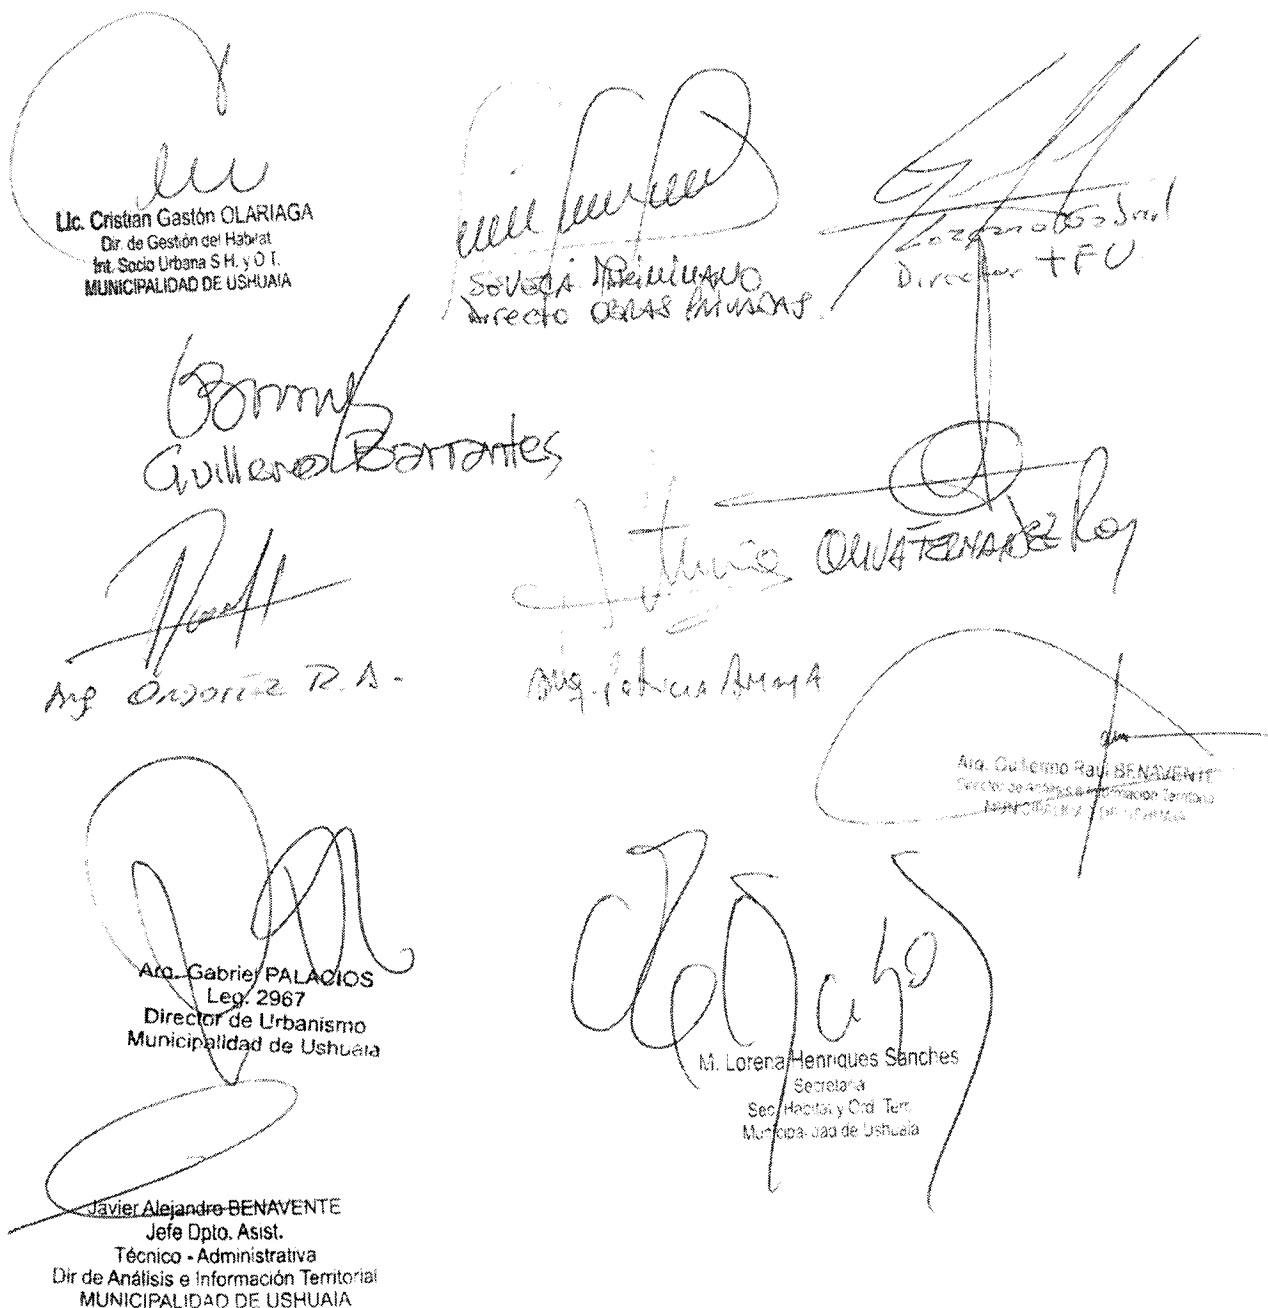 Lic. Cristian Gastón OLARIAGA
Dir. de Gestión del Hábitat
Int. Socio Urbana S.H. y O.T.
MUNICIPALIDAD DE USHUAIA
Directo OBRAS PRIVADAS.
Director
Guillermo Barrantes
OLIVA FERNANDEZ
Arq R. A.
Arq. Patricia AMAYA
Arq. Guillermo Raúl BENAVENTE
Director de Análisis e Información Territorial
MUNICIPALIDAD DE USHUAIA
Arq. Gabriel PALACIOS
Leg. 2967
Director de Urbanismo
Municipalidad de Ushuaia
M. Lorena Henriques Sanches
Secretaria
Sec. Hábitat y Ord. Terr.
Municipalidad de Ushuaia
Javier Alejandro BENAVENTE
Jefe Dpto. Asist.
Técnico - Administrativa
Dir de Análisis e Información Territorial
MUNICIPALIDAD DE USHUAIA